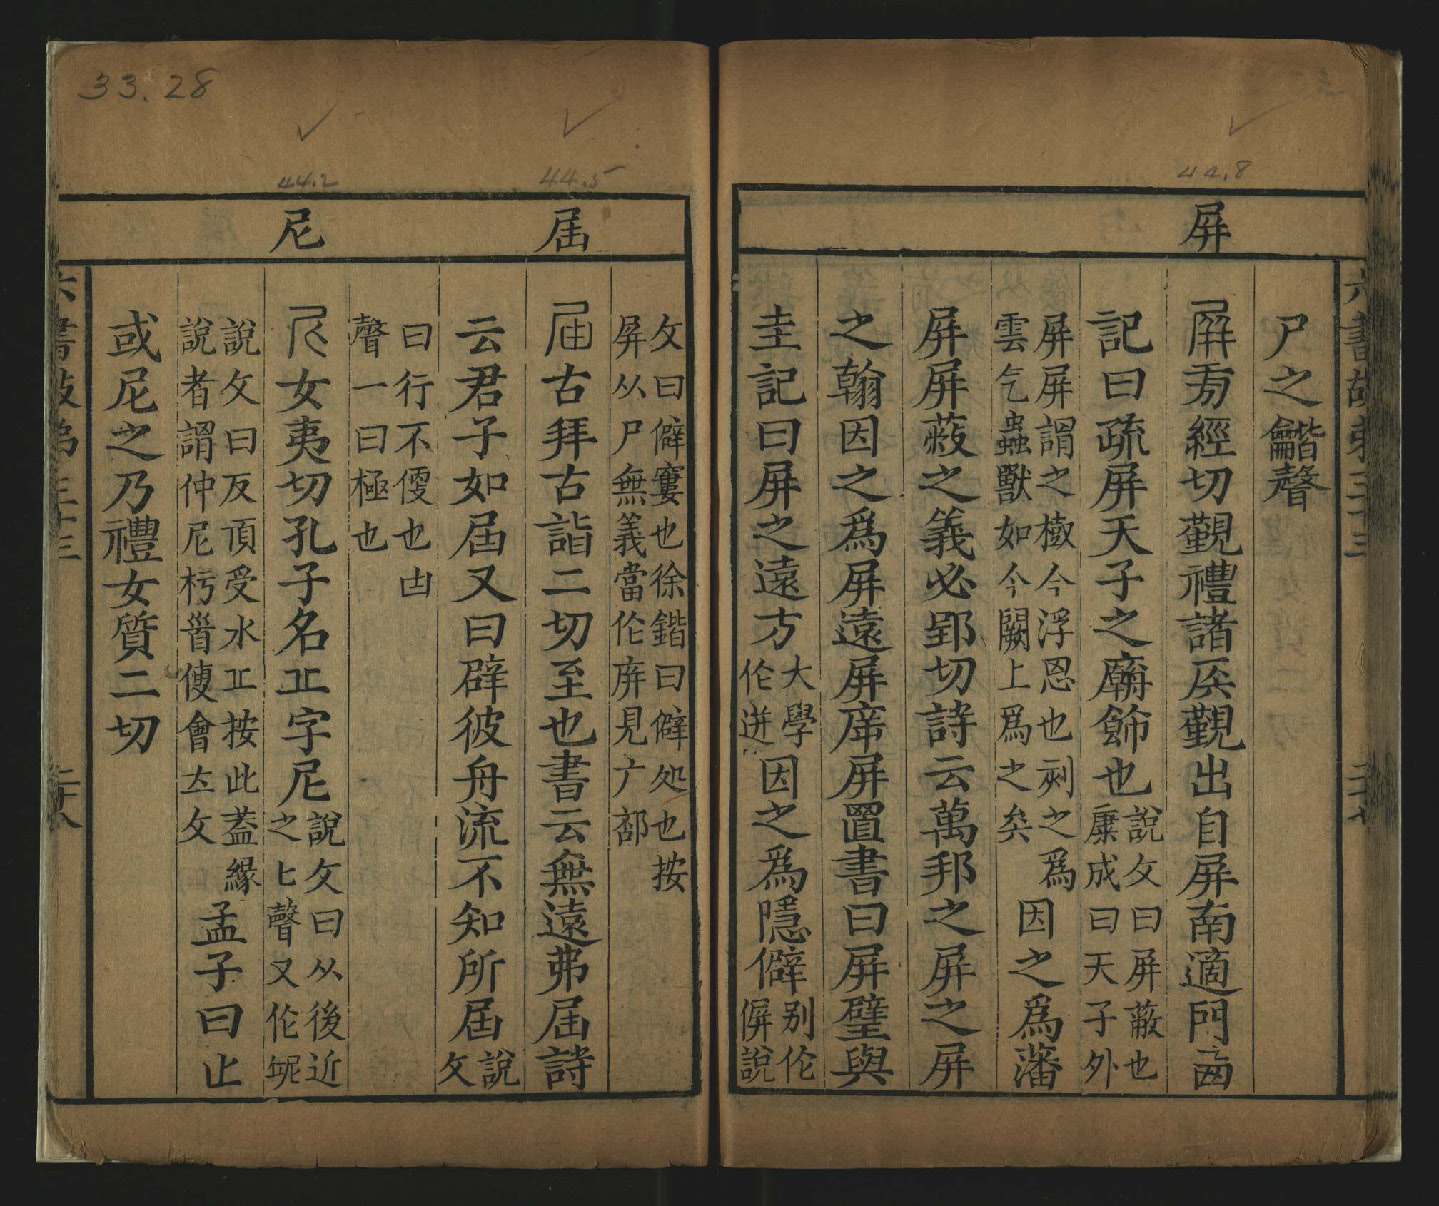 33.28
44.8
44.5
44.2
屏
屆
尼
六書故弟三十三
尸之龤聲
㞟㫄經切觀禮諸矦觀出自屏南適門
記曰疏屏天子之廟飾也說攵曰屏蔽也
康成曰天子外
屏屏謂之樹今浮思也刻之爲
雲气蟲獸如今闕上爲之矣因之爲藩
屏屏蔽之義必郢切詩云萬邦之屏之屏
之翰因之爲屏遠屏席屏置書曰屏璧與
圭記曰屏之遠方大學
伦迸因之爲隱僻別伦
偋說
攵曰僻寠也徐鍇曰僻処也按
屏从尸無義當伦庰見广部
古拜古詣二切至也書云無遠弗屆詩
云君子如屆又曰辟彼舟流不知所屆說
攵
曰行不㑜也凷
聲一曰極也
女夷切孔子名丘字尼說攵曰从後近
之匕聲又伦
說攵曰反頂受水丘按此葢緣
說者謂仲尼
會去攵孟子曰止
或尼之乃禮女質二切